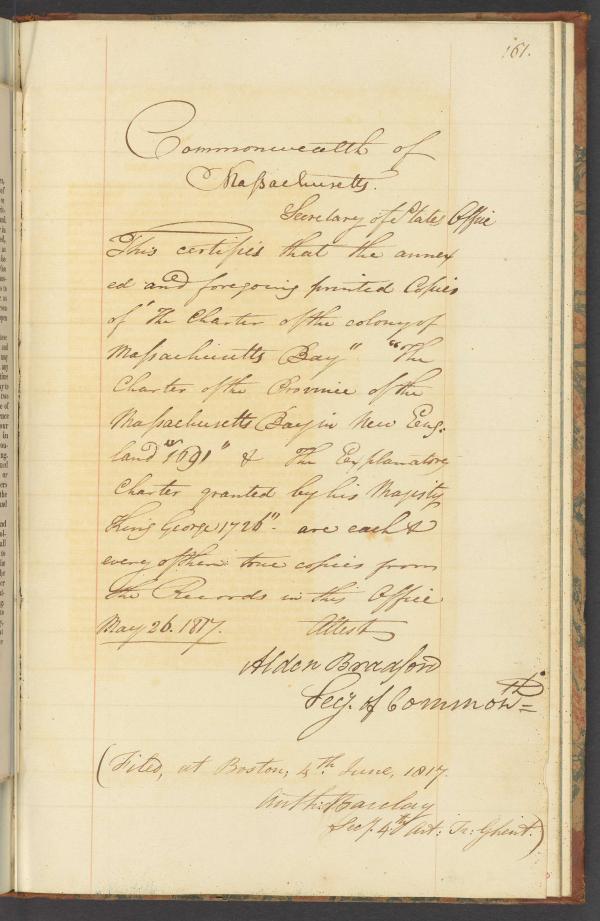 161.
Commonwealth of
Massachusetts.
Secretary of States Office
This certifies that the annex
ed and foregoing printed Copies
of "The Charter of the colony of
Massachusetts Bay" "The
Charter of the Province of the
Massachusetts Bay in New Eng:
land 1691" & The Explanatory
Charter granted by his Majesty
King George 1726". are each &
every of them true copies from
the Records in this Office
May 26. 1817. Attest
Alden Bradford
Secy. of Commonth
(Filed, at Boston, 4th June, 1817.
Anth: Barclay
Secy. 4th Art: Tr: Ghent.)